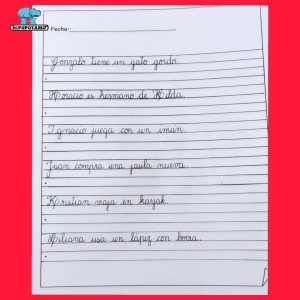 HIPOPOTAMO
Fecha:
Gonzalo tiene un gato gordo.
Horacio es hermano de Hilda.
Ignacio juega con un iman.
Juan compra una jaula nueva.
Kristian viaja en kayak.
Liliana usa un lápiz con borra.